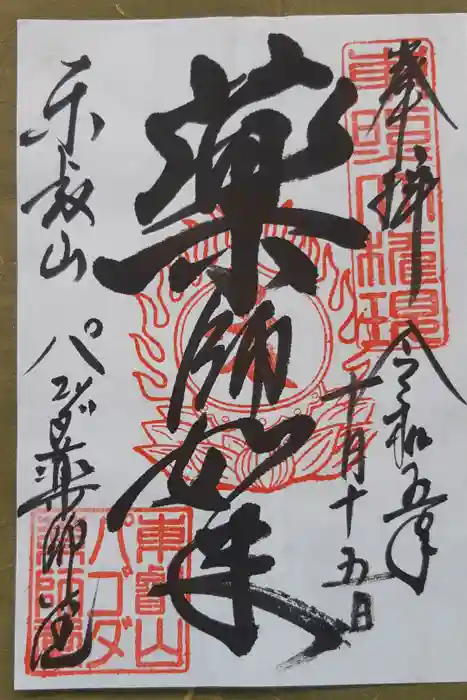 奉拝
令和五年
十月十五日
東照大権現
薬師如来
東叡山
パゴダ薬師堂
東叡山
パゴダ
薬師堂